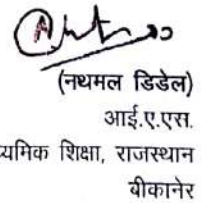 (नथमल डिडेल)
आई.ए.एस.
ध्यमिक शिक्षा, राजस्थान
बीकानेर